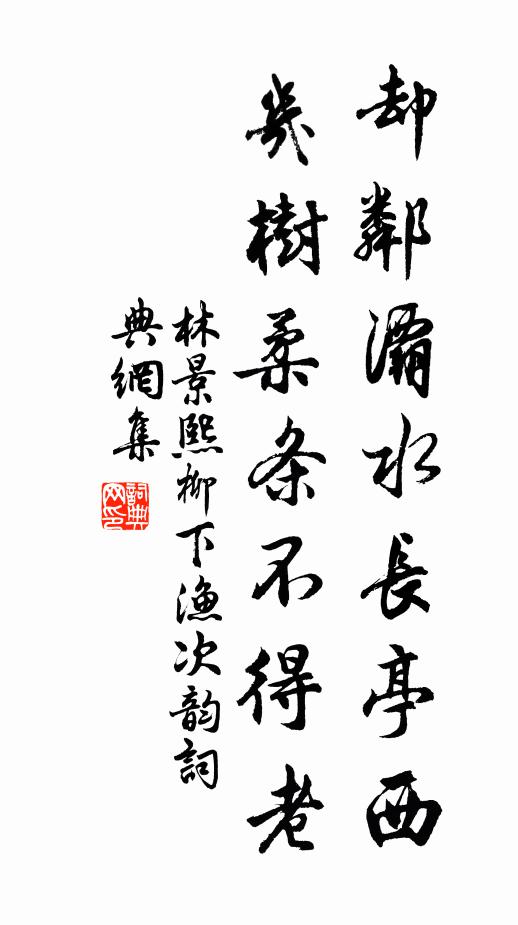 却鄰灞水長亭西
幾樹柔条不得老
林景熙柳下漁次韵詞
典網集
詞典网印